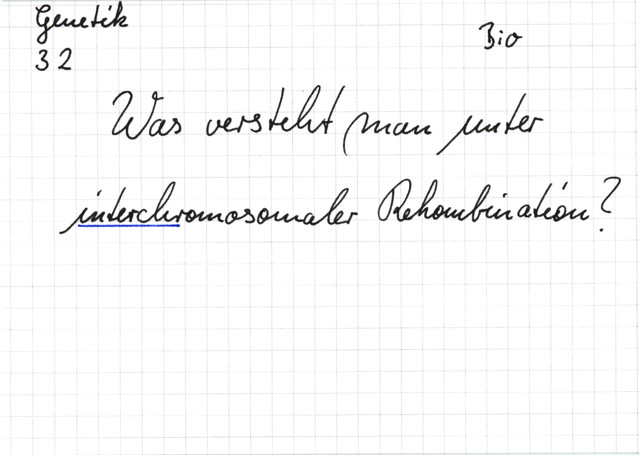 Genetik
Bio
32
Was versteht man unter
interchromosomaler Rekombination?